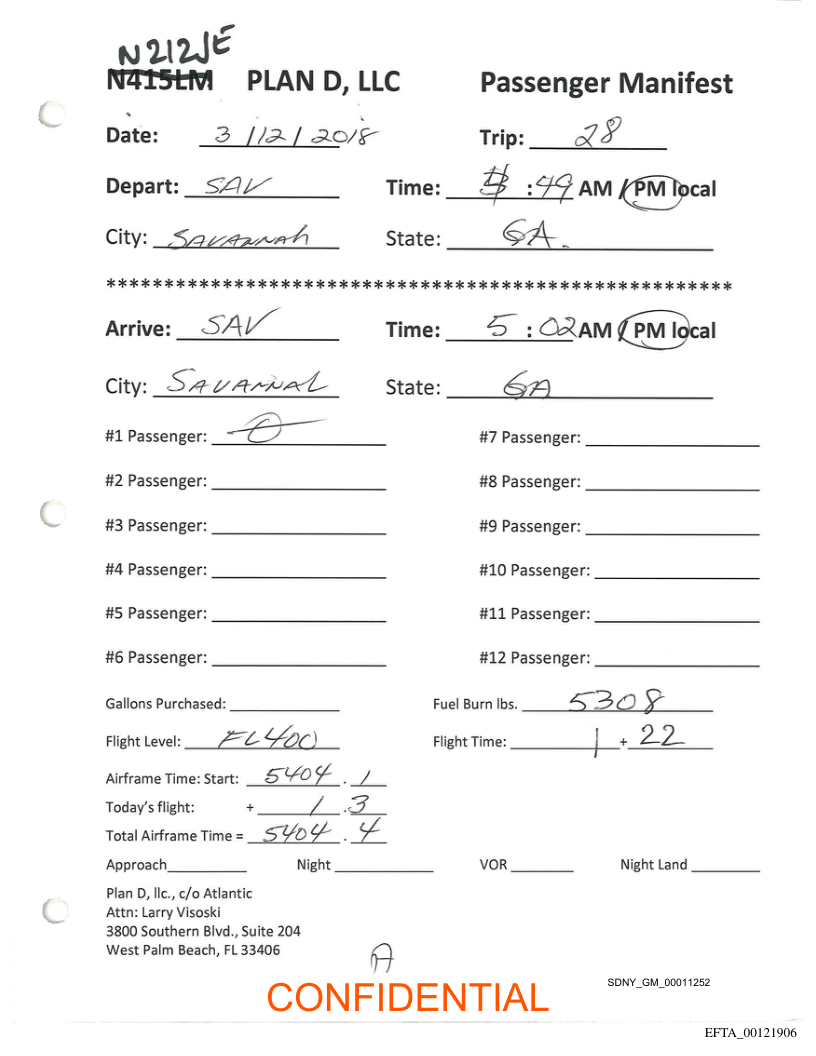 N212JE
N415LM PLAN D, LLC Passenger Manifest
Date: 3 / 12 / 2018 Trip: 28
Depart: SAV Time: :49 AM / PM local
City: SAVANNAh State: GA.
******************************************************
Arrive: SAV Time: 5 : 02 AM / PM local
City: SAVANNAL State: GA
#1 Passenger: #7 Passenger:
#2 Passenger: #8 Passenger:
#3 Passenger: #9 Passenger:
#4 Passenger: #10 Passenger:
#5 Passenger: #11 Passenger:
#6 Passenger: #12 Passenger:
Gallons Purchased: Fuel Burn lbs. 5308
Flight Level: FL400 Flight Time: 1 + 22
Airframe Time: Start: 5404 . 1
Today's flight: + 1 .3
Total Airframe Time = 5404 . 4
Approach Night VOR Night Land
Plan D, llc., c/o Atlantic
Attn: Larry Visoski
3800 Southern Blvd., Suite 204
West Palm Beach, FL 33406
SDNY_GM_00011252
CONFIDENTIAL
EFTA_00121906